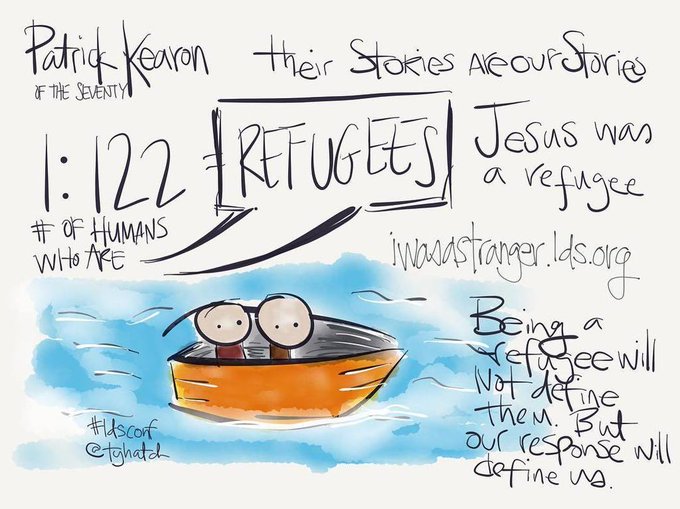 Patrick Kearon
OF THE SEVENTY
their Stories Are our Stories
1:122
# OF HUMANS
WHO ARE
REFUGEES
Jesus was
a refugee
iwasastranger.lds.org
Being a
refugee will
Not define
them. But
our response will
define us.
#ldsconf
@tghatch